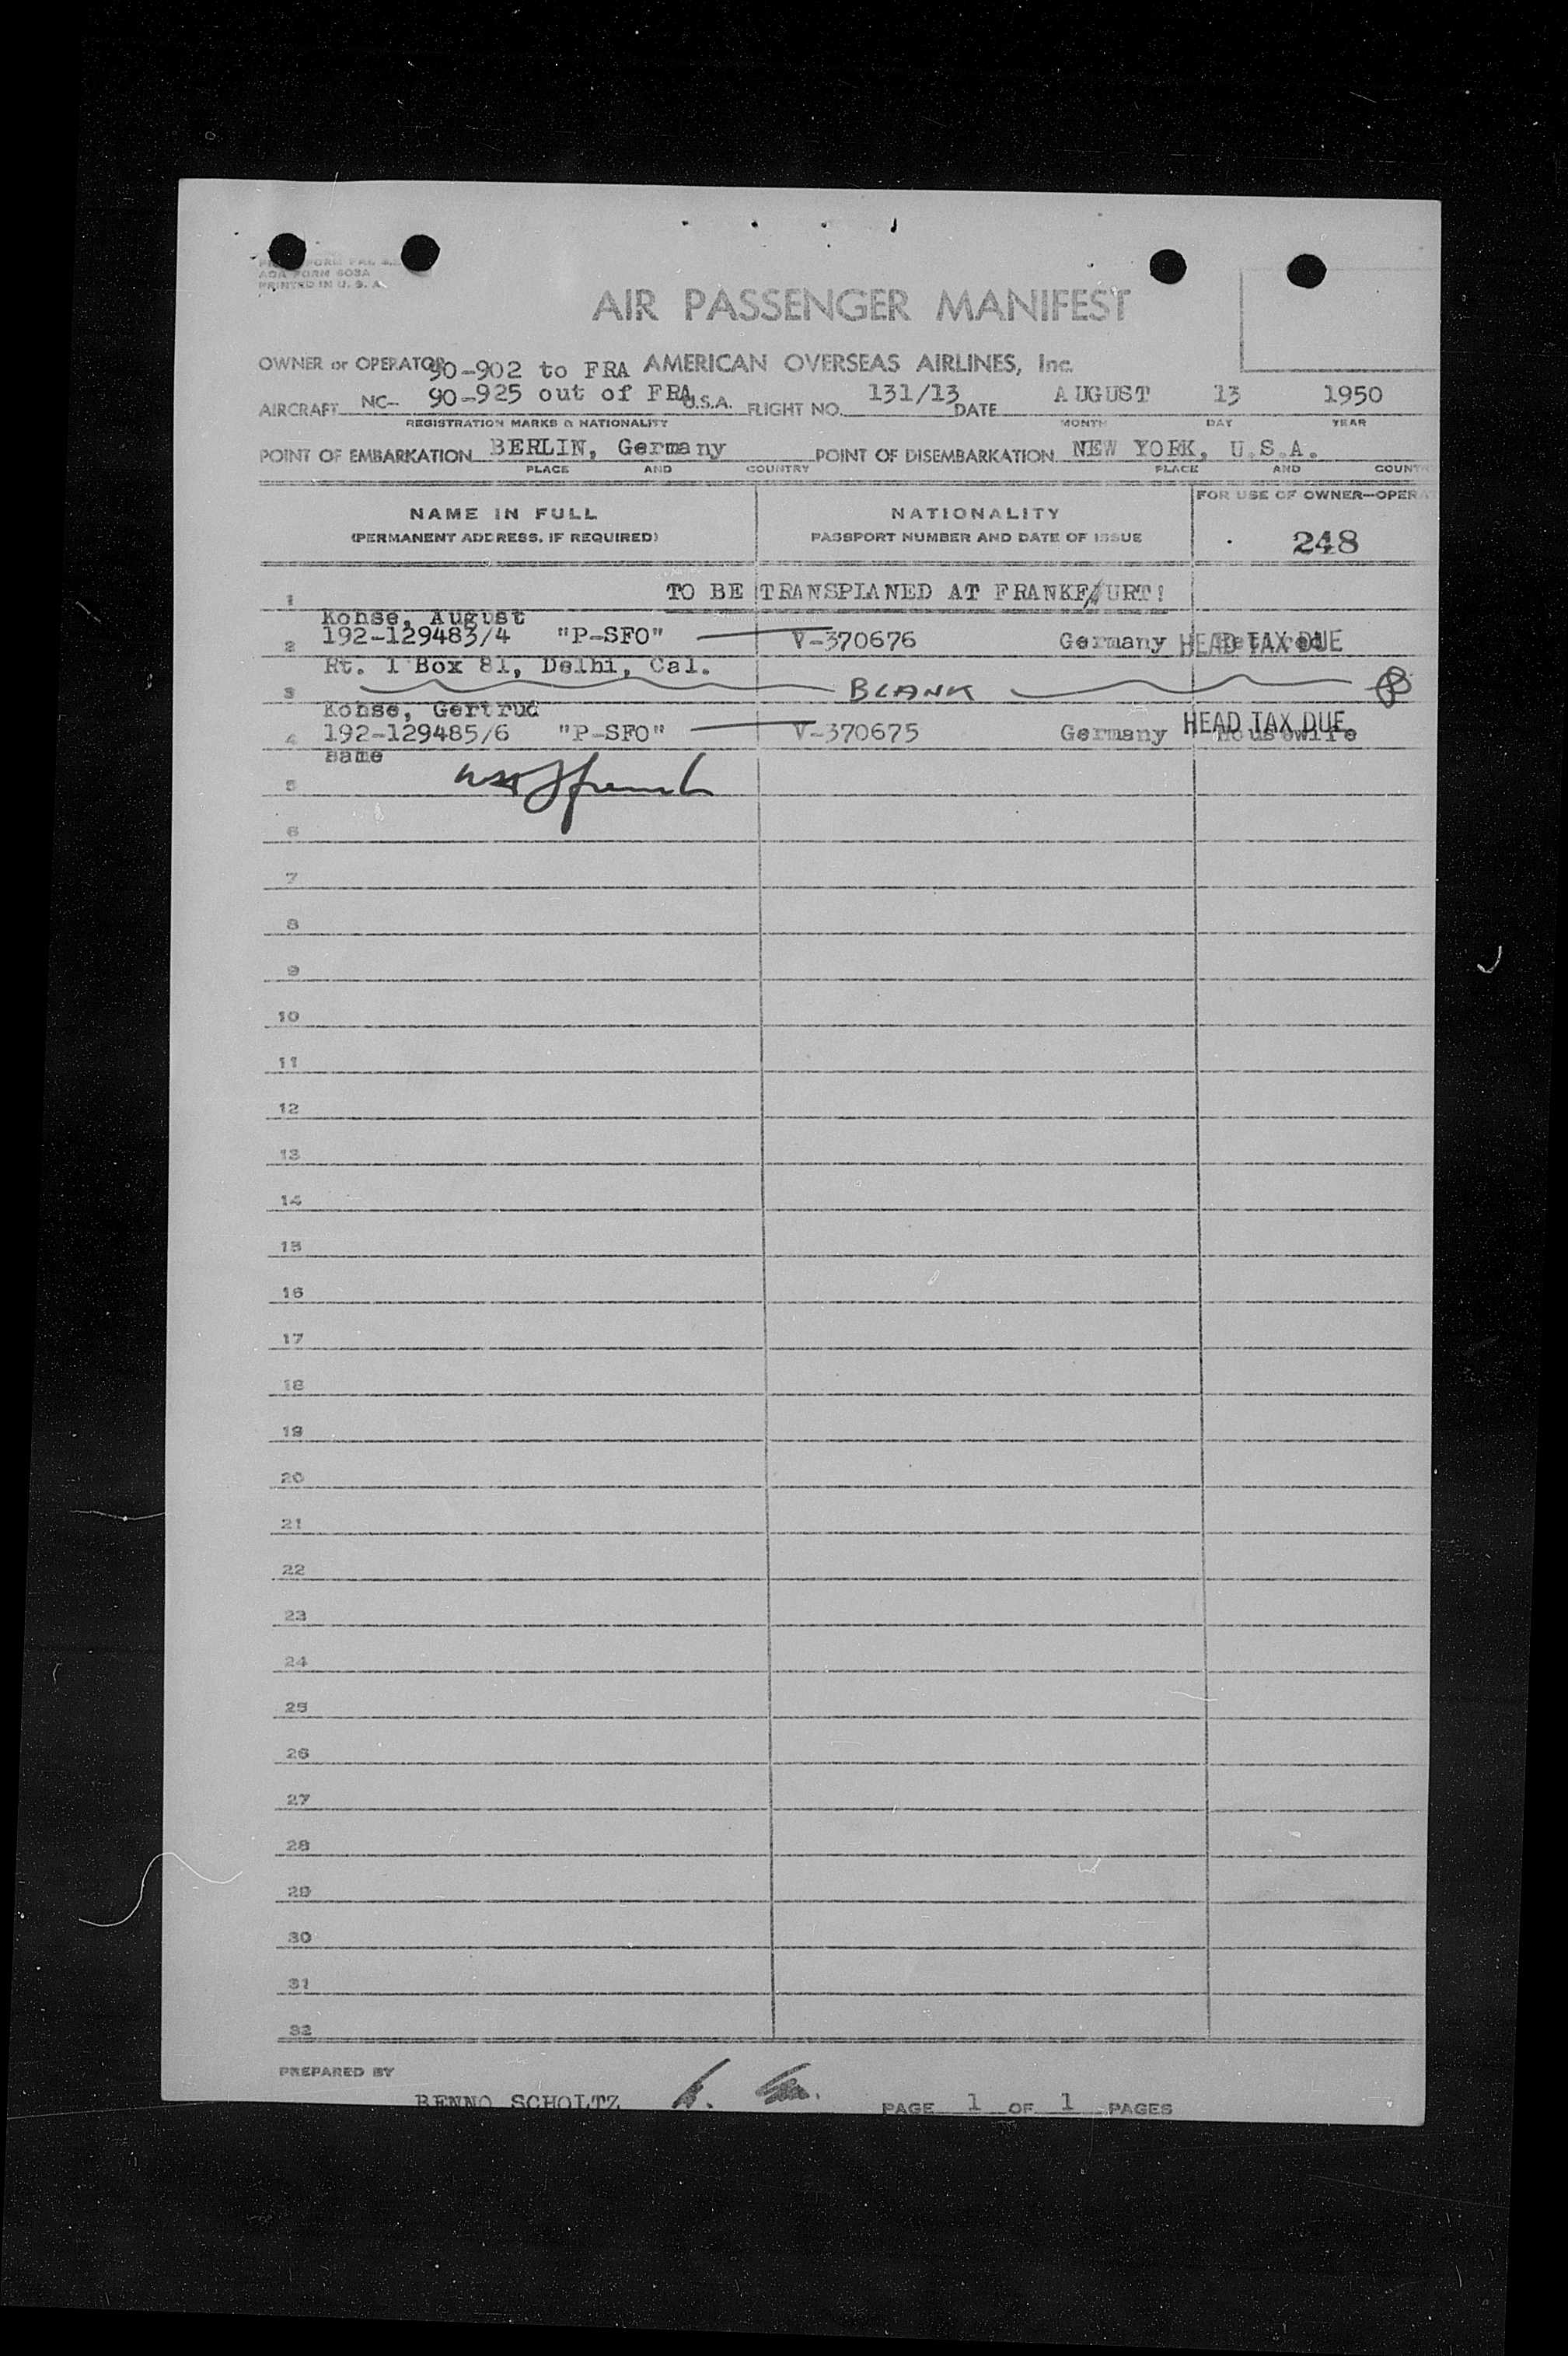 FORM
AOA FORM 603A
PRINTED IN U. S. A.
AIR PASSENGER MANIFEST
OWNER or OPERATOR 90-902 to FRA AMERICAN OVERSEAS AIRLINES, Inc.
AIRCRAFT NC- 90-925 out of FRA U.S.A. FLIGHT NO. 131/13 DATE AUGUST 13 1950
REGISTRATION MARKS & NATIONALITY MONTH DAY YEAR
POINT OF EMBARKATION BERLIN, Germany POINT OF DISEMBARKATION NEW YORK, U.S.A.
PLACE AND COUNTRY PLACE AND COUNT
NAME IN FULL NATIONALITY FOR USE OF OWNER—OPERAT
(PERMANENT ADDRESS, IF REQUIRED) PASSPORT NUMBER AND DATE OF ISSUE 248
1 TO BE TRANSPLANED AT FRANKFURT!
Kohse, August
2 192-129483/4 "P-SFO" V-370676 Germany HEAD TAX DUE
Rt. 1 Box 81, Delhi, Cal.
3 BLANK
Kohse, Gertrud
4 192-129485/6 "P-SFO" V-370675 Germany HEAD TAX DUE Housewife
same
5
6
7
8
9
10
11
12
13
14
15
16
17
18
19
20
21
22
23
24
25
26
27
28
29
30
31
32
PREPARED BY
BENNO SCHOLTZ PAGE 1 OF 1 PAGES